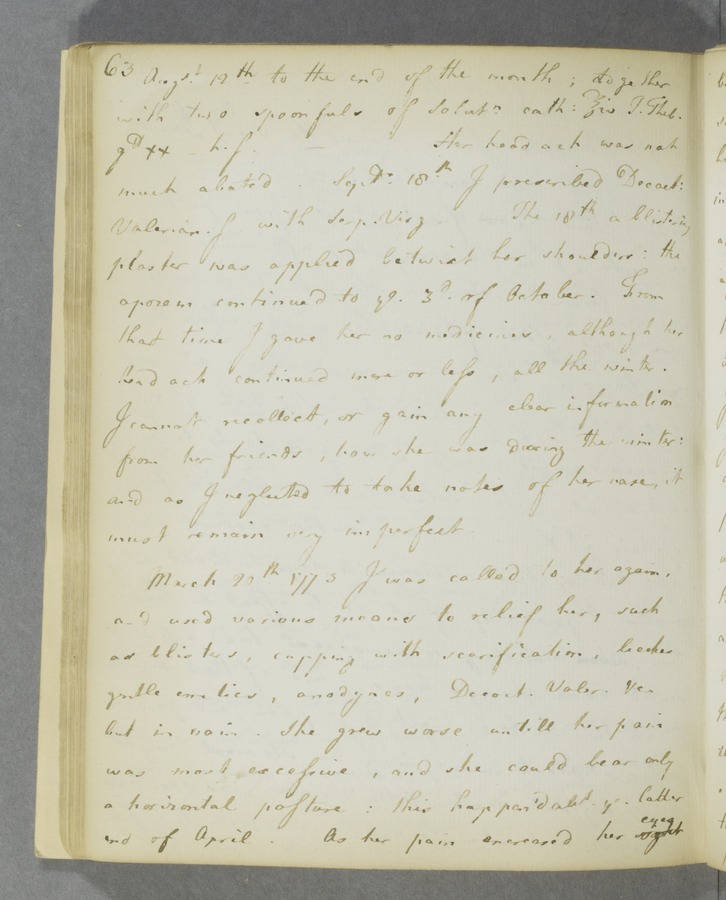 63 Augst. 19th to the end of the month ; together
with two spoonfuls of Solutn cath: ʒiv T. Theb.
gtt xx - h. s. - Her head ach was not
much abated. Septr. 18th I prescribed Decoct:
Valerian. S with Serp. Virg. The 18th a blistering
plaster was applied betwixt her shoulders: the
apozem continued to ye. 3d. of October. From
that time I gave her no medicines, although her
head ach continued more or less, all the winter.
I cannot recollect, or gain any clear information
from her friends, how she was during the winter:
and as I neglected to take notes of her case, it
must remain very imperfect
March 22th 1773 I was called to her again,
and used various means to relief her, such
as blisters, cupping with scarification, leeches
gentle emetics, anodynes, Decoct. Valer. &c.
but in vain. She grew worse untill her pain
was most excessive, and she could bear only
a horizontal posture : this happen'd abt. ye. latter
end of April. As her pain encreased her eyes